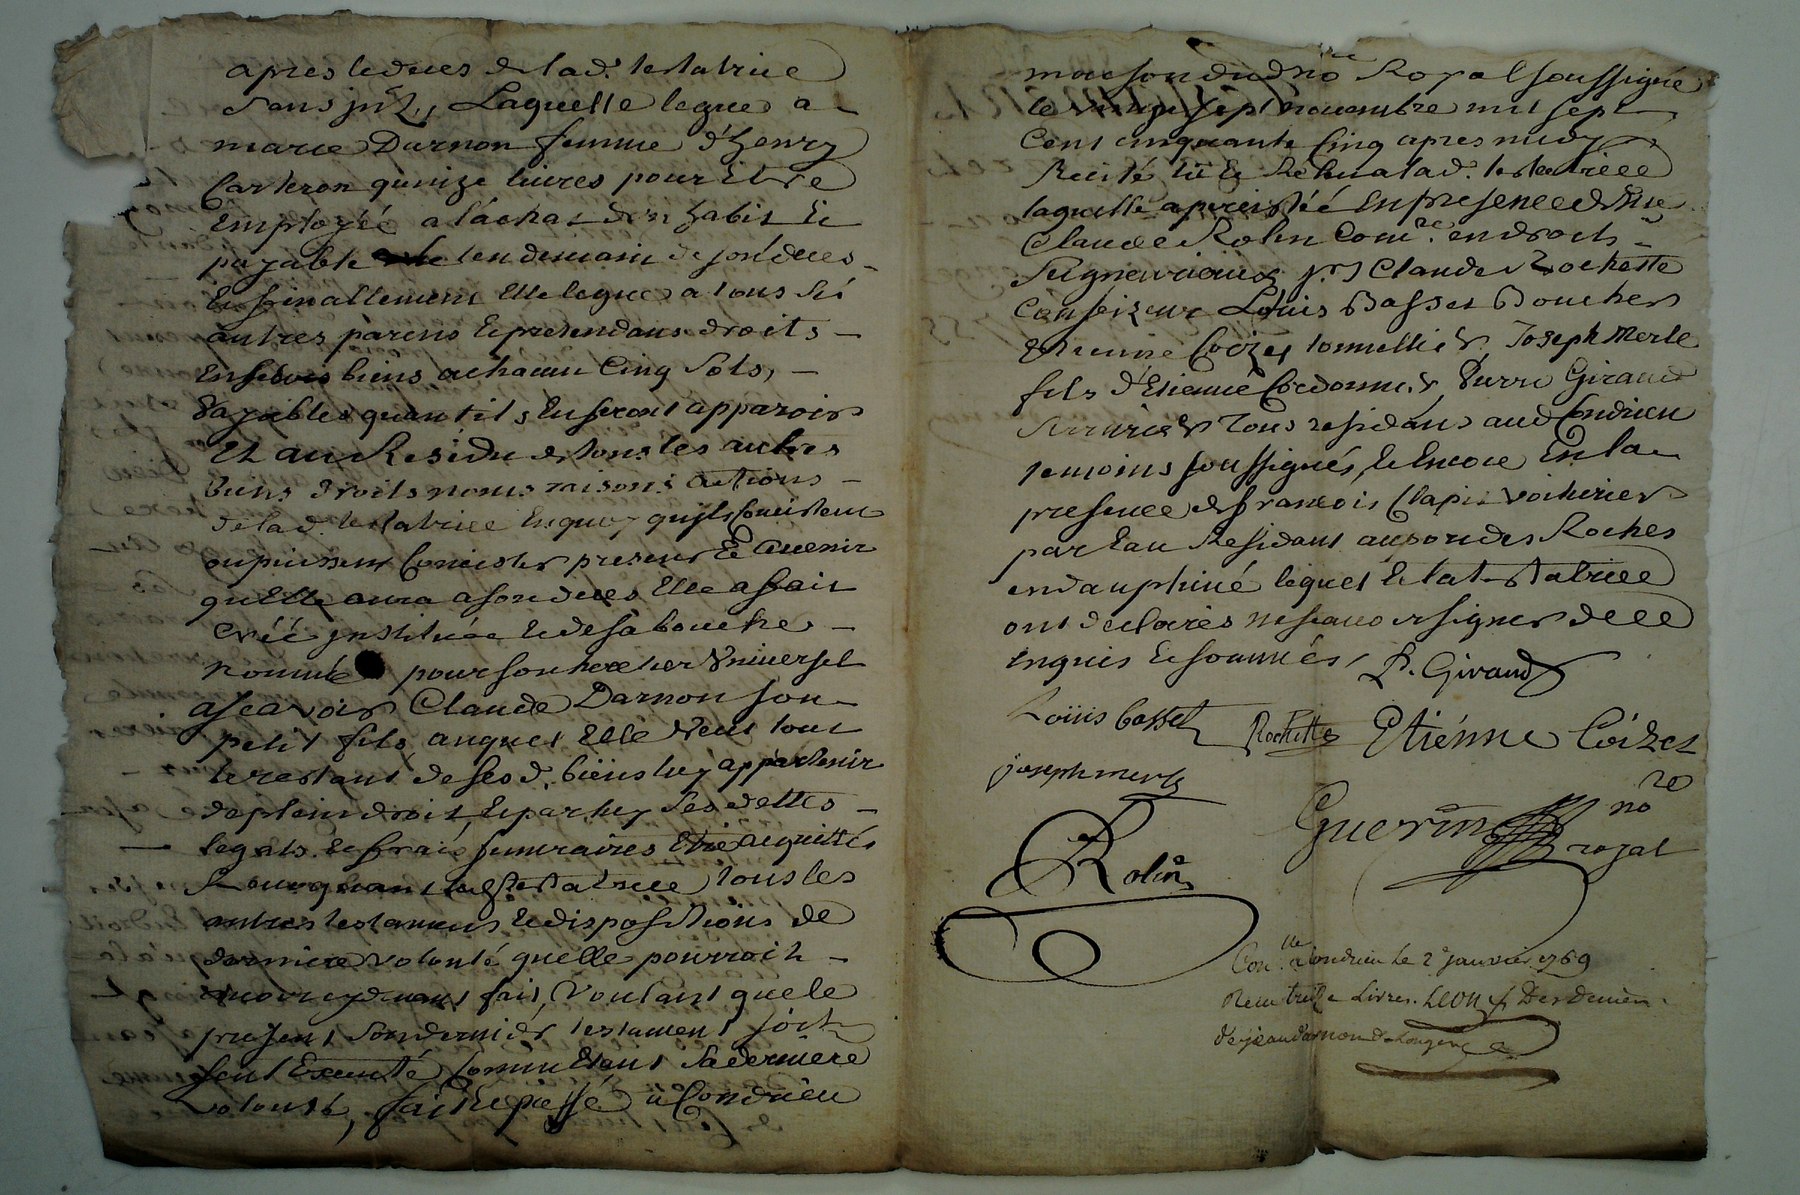 apres le deces de lad. testatrice
sans jnt., Laquelle legue a
marie Darnon femme d'henry
Carteron quinze livres pour Etre
Employée a l'achat d'un habit Et
payable le lendemain de son deces
Et finallement Elle legue a tous ses
autres parens Et pretendans droits
En sesdts biens a chacun Cinq Sols,
Payables quant ils En feront apparoir
Et au Residu de tous les autres
biens droits noms raisons actions
de lad. testatrice En quoy quils Concistent
ou puissent Concister present Et avenir
quElle aura a son deces Elle a fait
créé instituée Et de sa bouche
nommé pour son heretier Universel
ascavoir Claude Darnon son
petit fils auquel Elle veut tout
le restant de sesd. biens luy appartenir
de plein droit, Et par luy ses dettes
legats Et frais funeraires Etre acquittés
Revoquant lad. testatrice tous les
autres testamens Et dispositions de
derniere volonté quelle pourroit
avoir cy devant fait, Voulant que le
present son dernier testament soit
seul Executé Comme Etant Sa derniere
volonté, fait Et passé a Condrieu
maison dud no.re Royal soussigné
le vingt sept novembre mil sept
Cent cinquante Cinq apres midy
Recité lû Et Relu a lad. testatrice
laquelle a persistée En presence de Me
Claude Rolin Com.re en droits
Seigneuriaux, s.r Claude Rochette
Confizeur Louis Basset Boucher
Etienne Coizet tonnellier, Joseph Merle
fils d'Etienne Cordonnier, Pierre Giraud
Serrurier Tous residans aud Condrieu
temoins soussignés, Et Encore En la
presence de francois Clapit voiturier
par Eau Residant au port des Roches
en dauphiné lequel Et la testatrice
ont declarés ne scavoir signer de ce
Enquis Et sommés,
P. Giraud
Loüis basset Rochette Etiénne Coizet
joseph merle
Guerin no.re royal
Rolin
Con.lle a Condrieu le 2 janvier 1769
Recu treize Livres.
de jean darnon de Longes